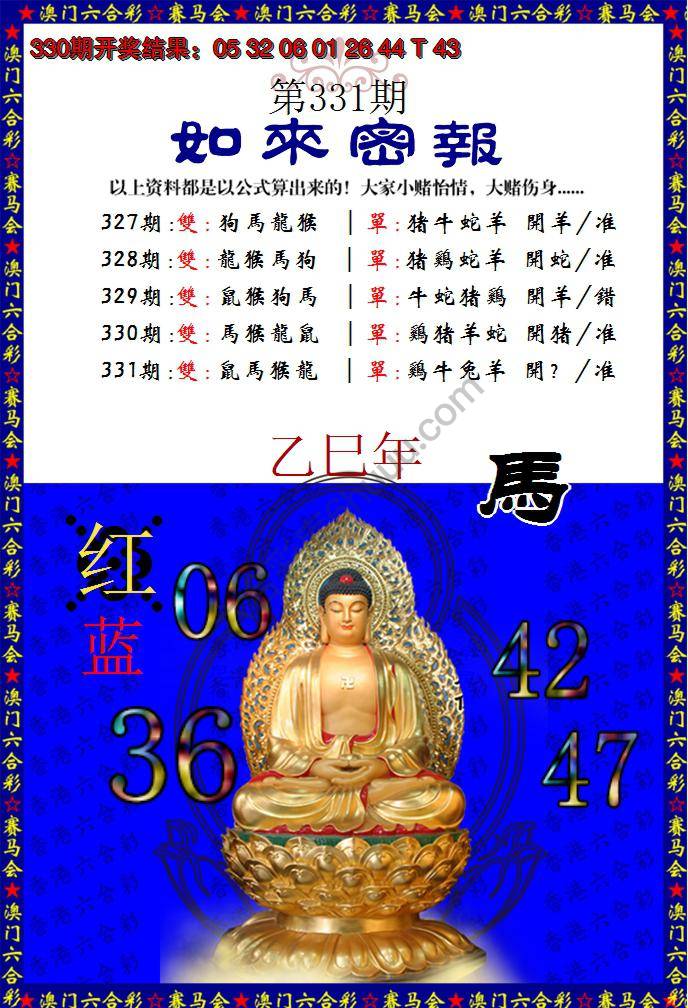 ★澳门六合彩☆赛马会★澳门六合彩☆赛马会★澳门六合彩☆赛马会★澳门六合彩☆赛马会★
330期开奖结果：05 32 06 01 26 44 T 43
第331期
如來密報
以上资料都是以公式算出来的！大家小赌怡情，大赌伤身......
327期:雙:狗馬龍猴 | 單:猪牛蛇羊 開羊/准
328期:雙:龍猴馬狗 | 單:猪鷄蛇羊 開蛇/准
329期:雙:鼠猴狗馬 | 單:牛蛇猪鷄 開羊/錯
330期:雙:馬猴龍鼠 | 單:鷄猪羊蛇 開猪/准
331期:雙:鼠馬猴龍 | 單:鷄牛兔羊 開?/准
乙巳年
馬
红
蓝
06
42
36
47
香港六合彩
★澳门六合彩☆赛马会★澳门六合彩☆赛马会★澳门六合彩☆赛马会★澳门六合彩☆赛马会★